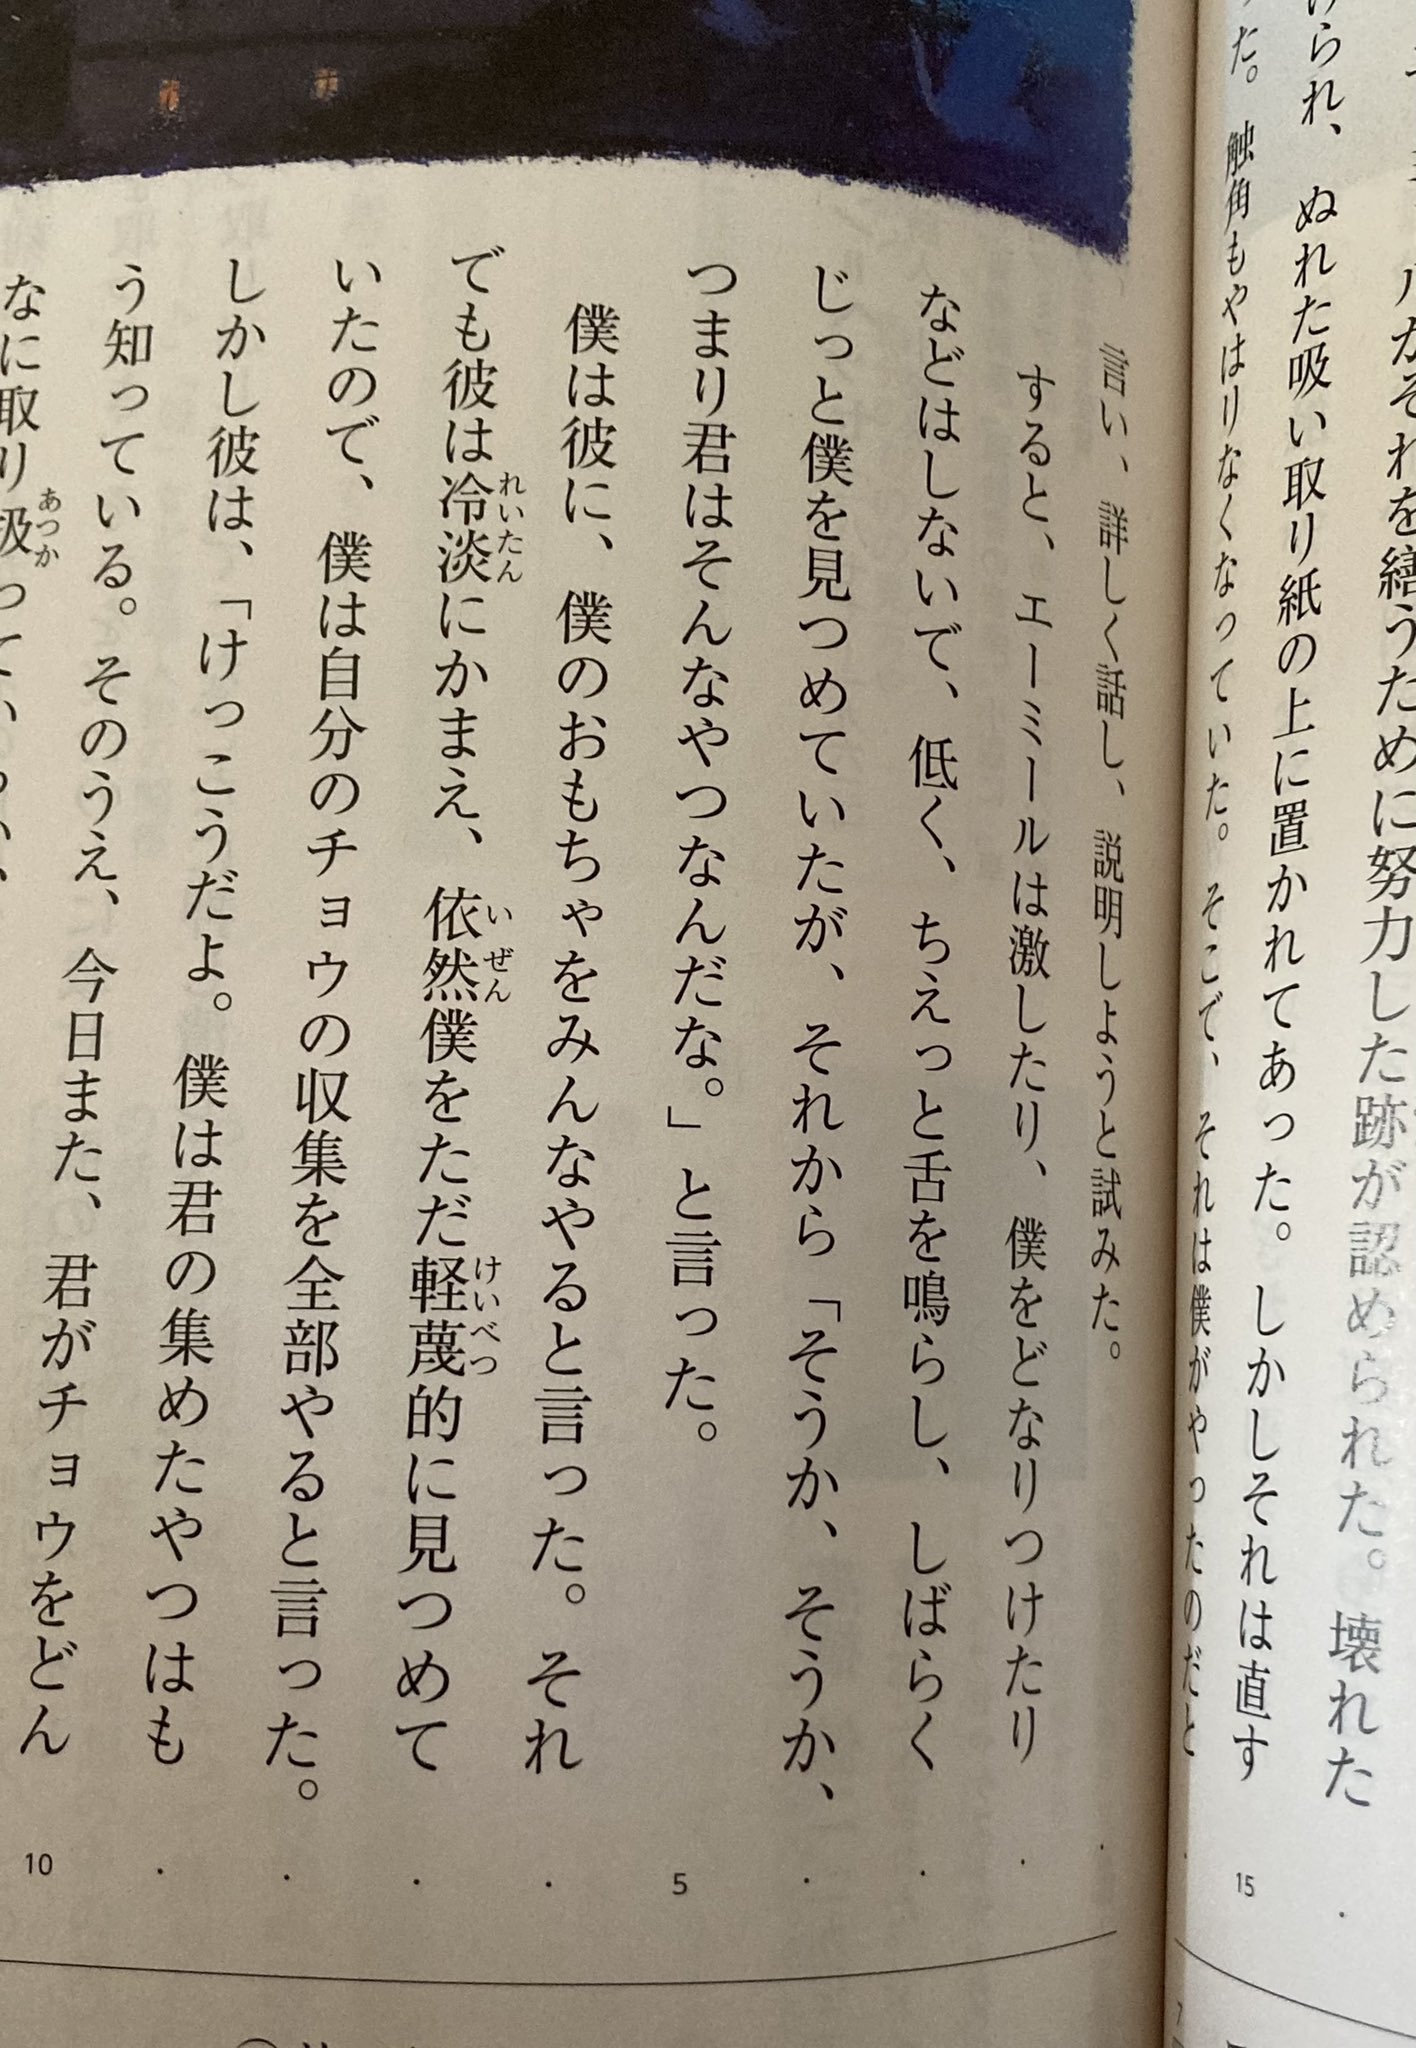 がそれを繕うために努力した跡が認められた。壊れた
られ、ぬれた吸い取り紙の上に置かれてあった。しかしそれは直す
た。触角もやはりなくなっていた。そこで、それは僕がやったのだと
言い、詳しく話し、説明しようと試みた。
すると、エーミールは激したり、僕をどなりつけたり
などはしないで、低く、ちえっと舌を鳴らし、しばらく
じっと僕を見つめていたが、それから「そうか、そうか、
つまり君はそんなやつなんだな。」と言った。
僕は彼に、僕のおもちゃをみんなやると言った。それ
でも彼は冷淡にかまえ、依然僕をただ軽蔑的に見つめて
れいたん
いぜん
けいべつ
いたので、僕は自分のチョウの収集を全部やると言った。
しかし彼は、「けっこうだよ。僕は君の集めたやつはも
う知っている。そのうえ、今日また、君がチョウをどん
なに取り扱って
あつか
15
5
10